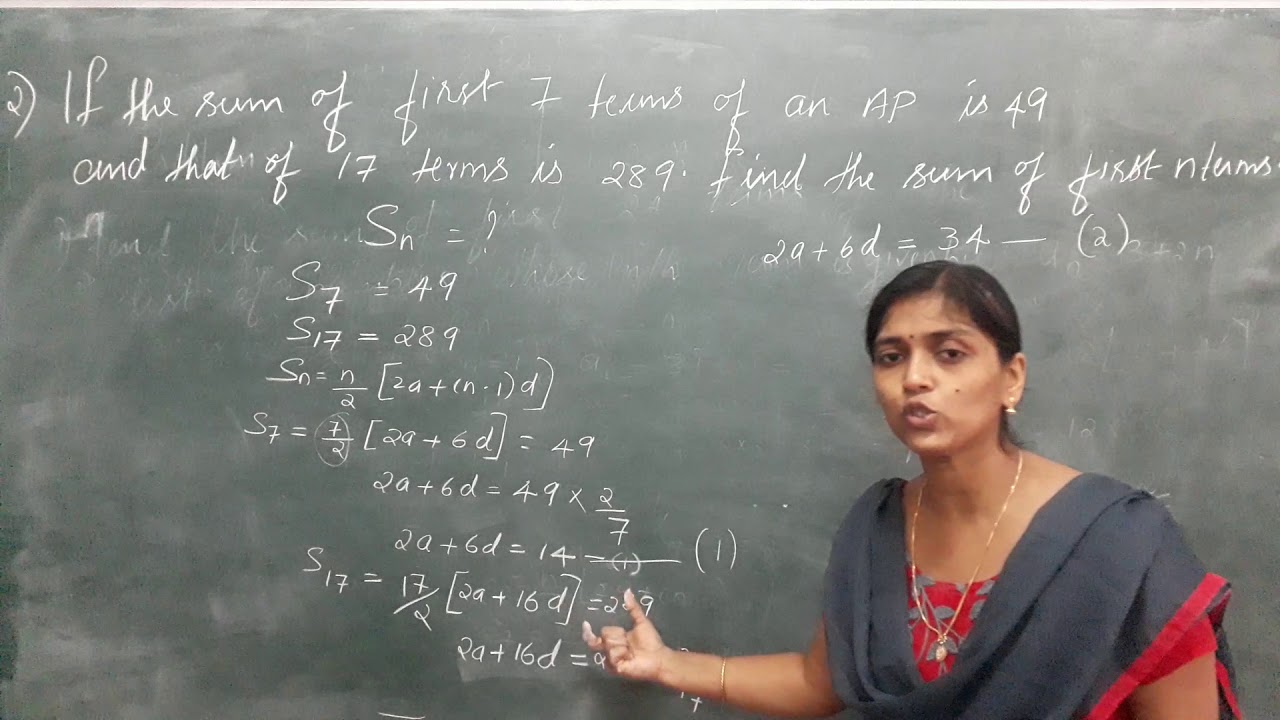 2) If the sum of first 7 terms of an AP is 49
and that of 17 terms is 289. Find the sum of first n terms.
Sn = ?
2a + 6d = 34 — (2)
S7 = 49
S17 = 289
Sn = n/2 [2a + (n-1)d]
S7 = 7/2 [2a + 6d] = 49
2a + 6d = 49 × 2/7
2a + 6d = 14 — (1) — (1)
S17 = 17/2 [2a + 16d] = 289
2a + 16d =